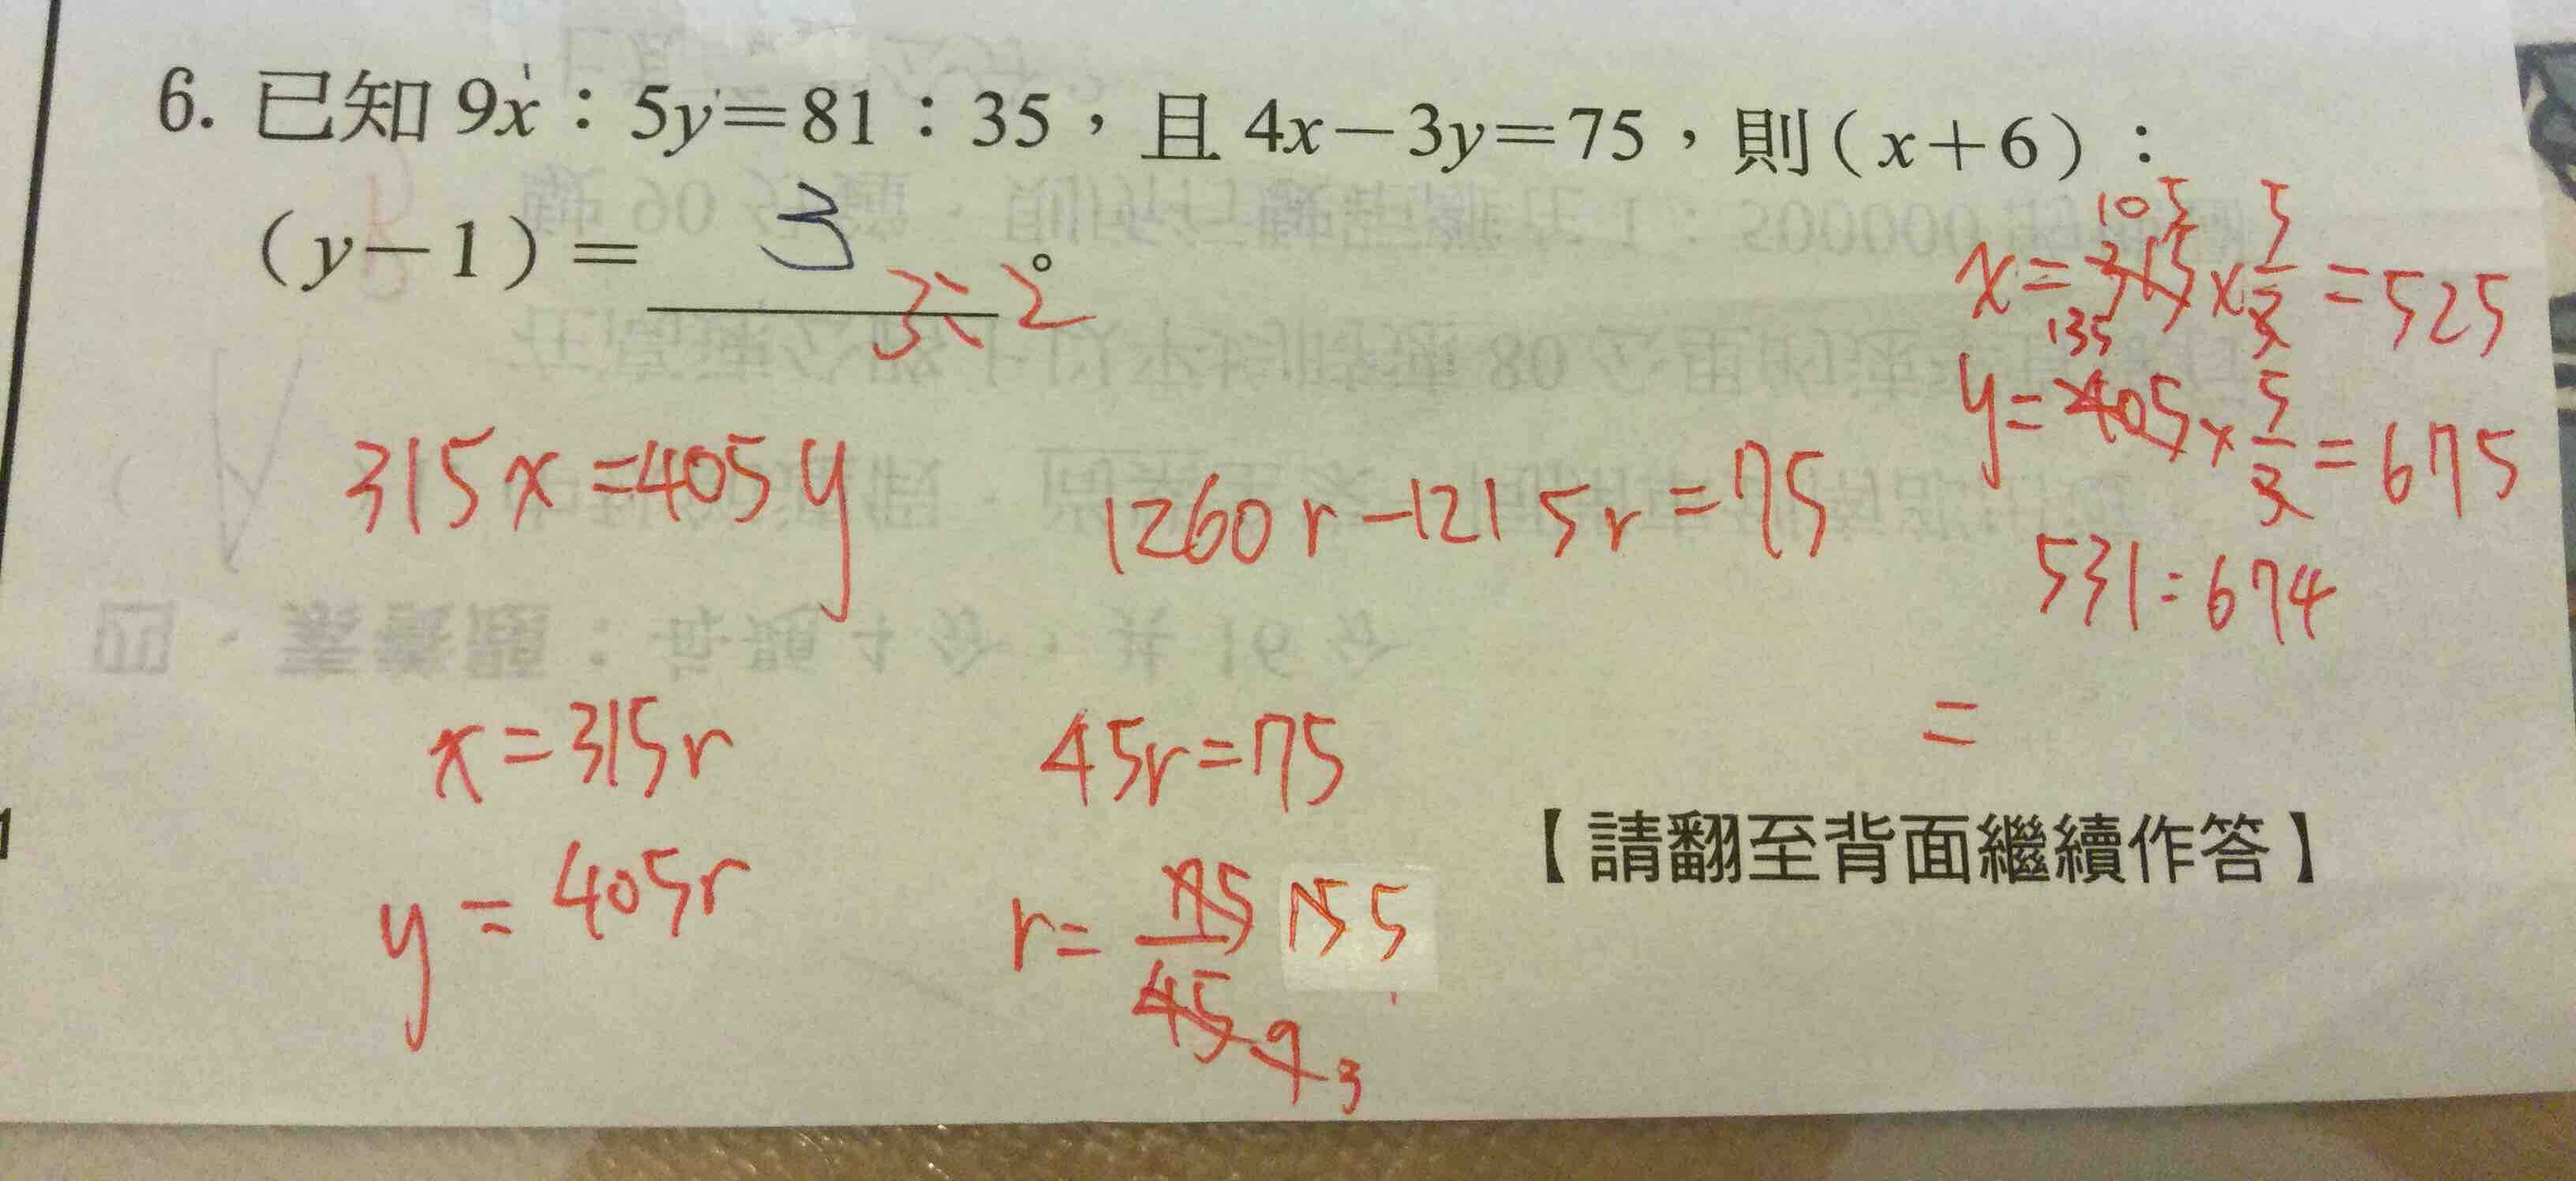 6. 已知 9x：5y＝81：35，且 4x－3y＝75，則（x＋6）：
（y－1）＝ 3 。
3：2
315x=405y
1260r-1215r=75
x=315r
45r=75
y=405r
r= 75/45 15 5
9 3
105
x=315×5/3=525
135
y=405×5/3=675
531:674
=
【請翻至背面繼續作答】